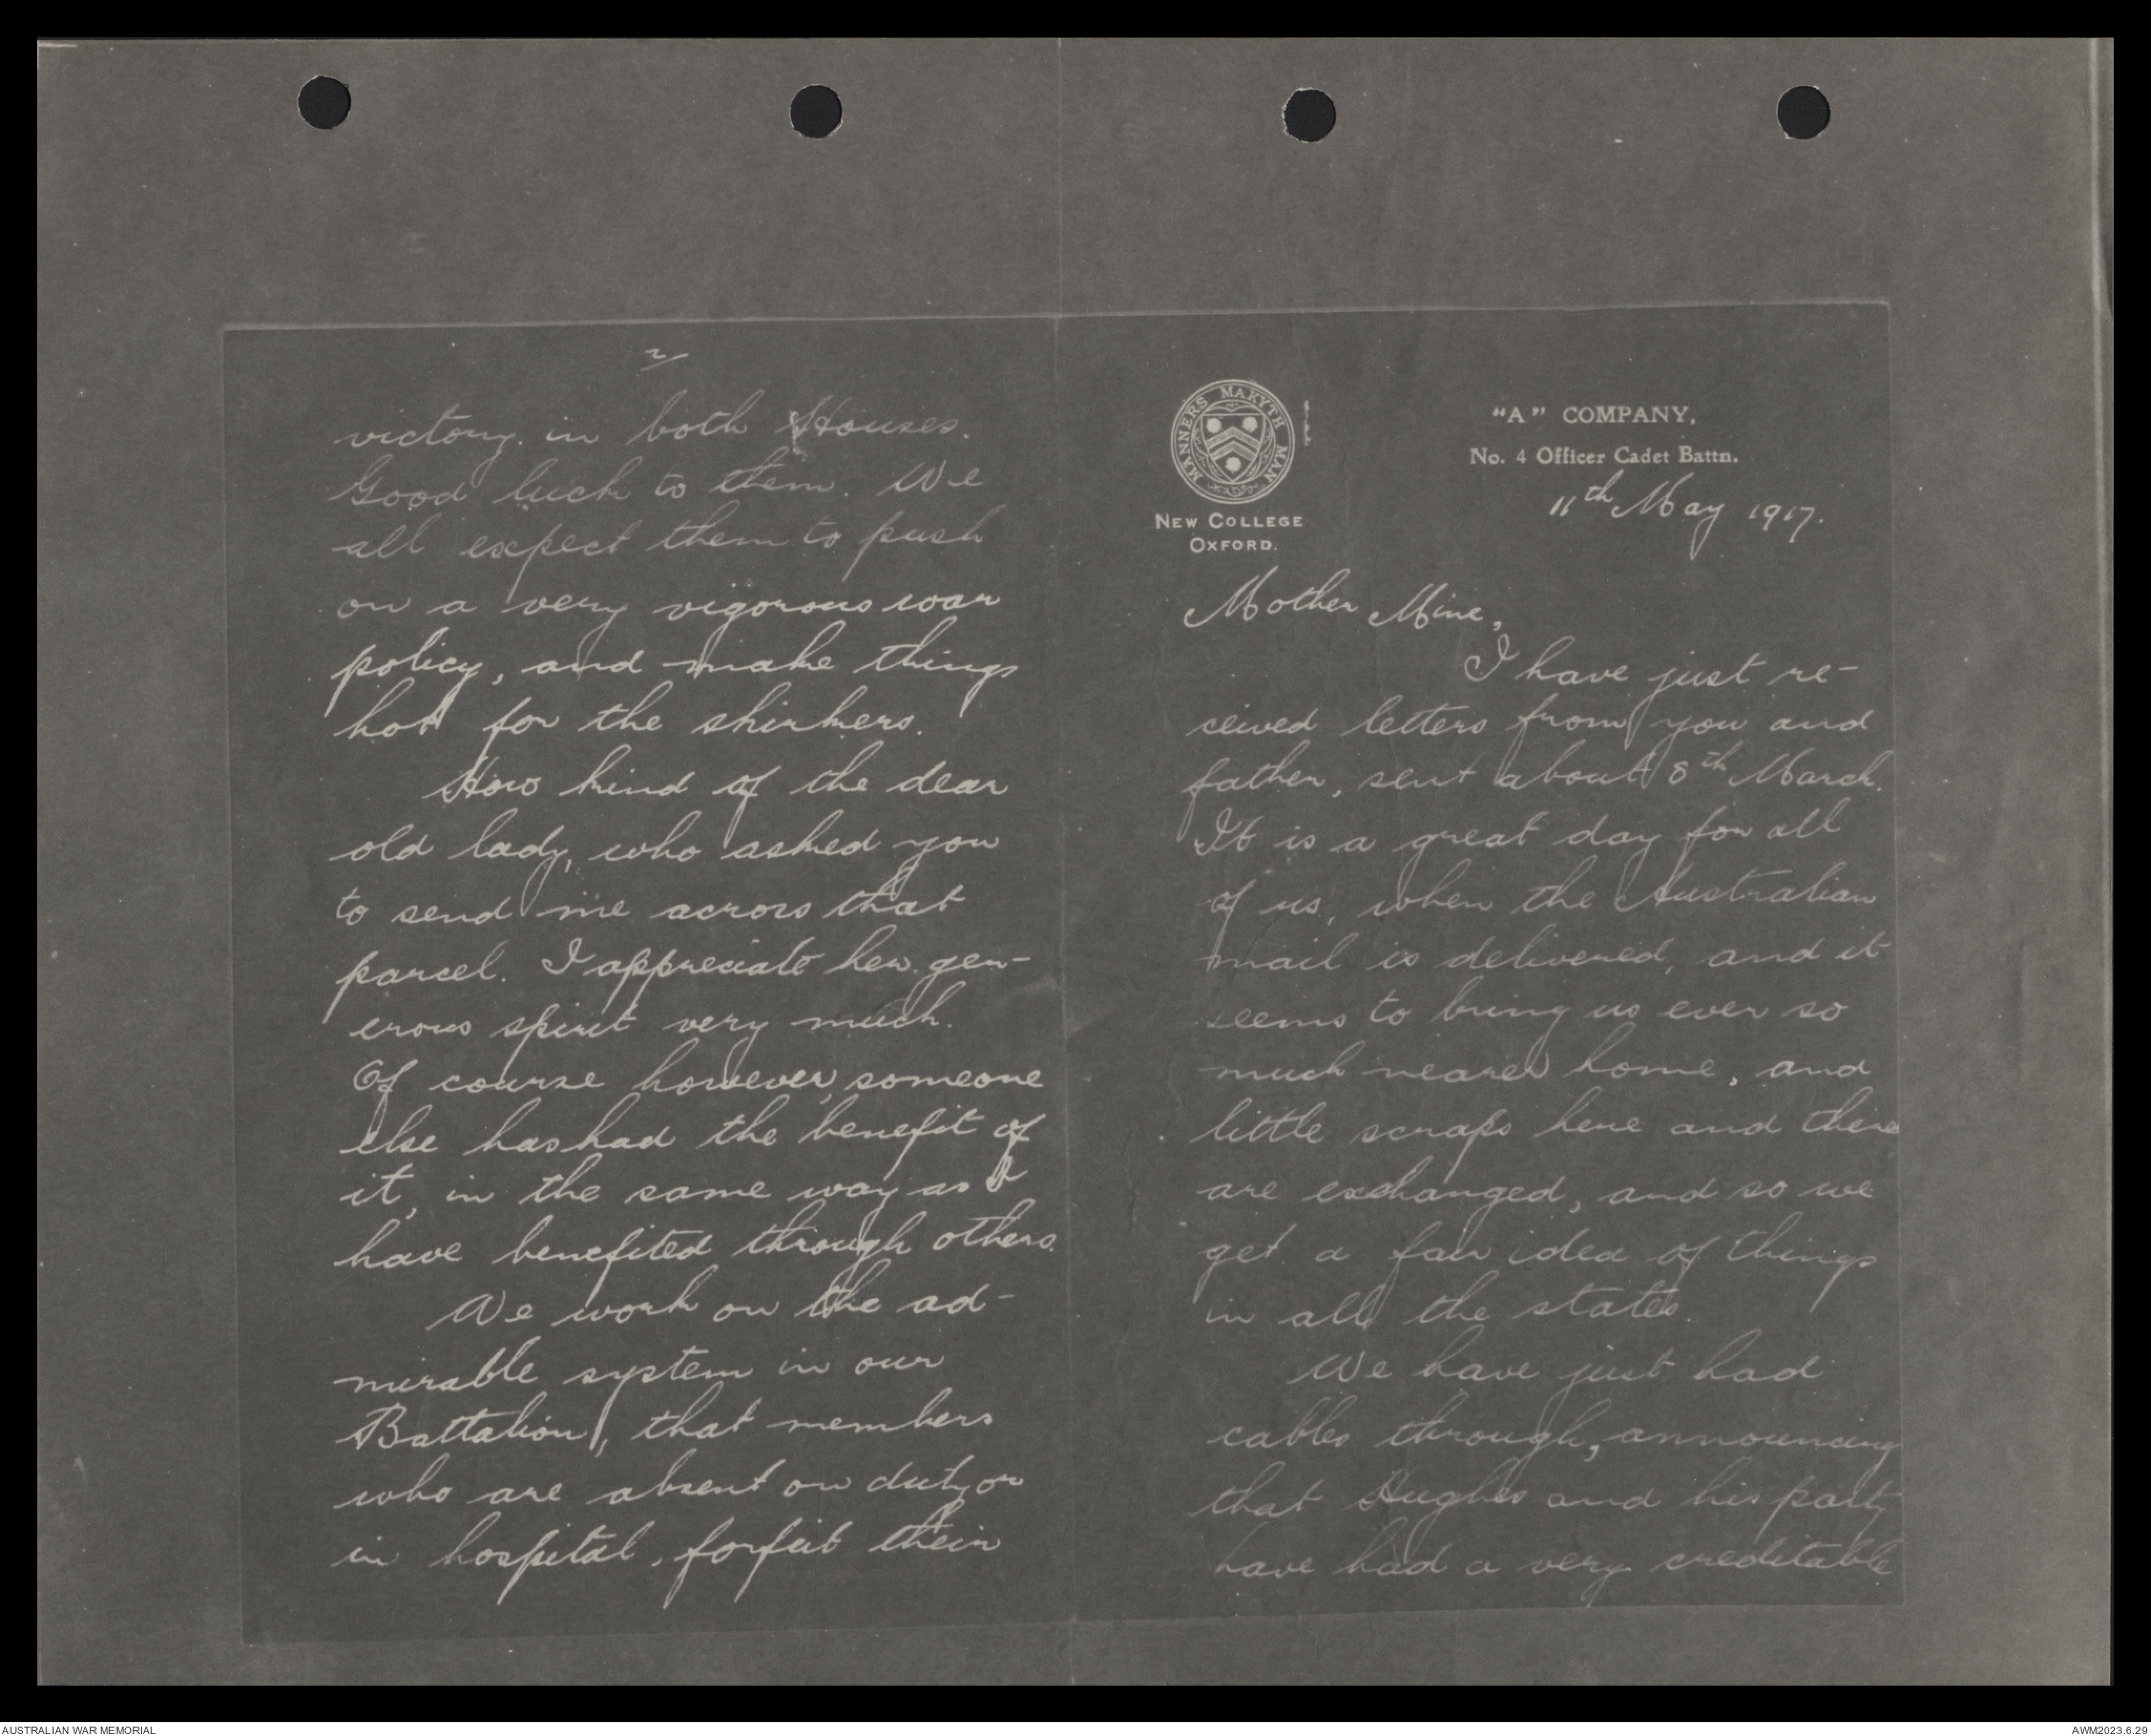 MANNERS MAKYTH MAN
NEW COLLEGE
OXFORD.
"A" COMPANY,
No. 4 Officer Cadet Battn.
11th May 1917.
Mother Mine,
I have just re-
ceived letters from you and
father, sent about 8th March.
It is a great day for all
of us, when the Australian
mail is delivered, and it
seems to bring us ever so
much nearer home, and
little scraps here and there
are exchanged, and so we
get a fair idea of things
in all the states.
We have just had
cables through, announcing
that Hughes and his party
have had a very creditable
2
victory in both Houses.
Good luck to them. We
all expect them to push
on a very vigorous war
policy, and make things
hot for the shirkers.
How kind of the dear
old lady, who asked you
to send me across that
parcel. I appreciate her gen-
erous spirit very much.
Of course however, someone
else has had the benefit of
it, in the same way as I
have benefited through others.
We work on the ad-
mirable system in our
Battalion, that members
who are absent on duty or
in hospital, forfeit their
AUSTRALIAN WAR MEMORIAL
AWM2023.6.29